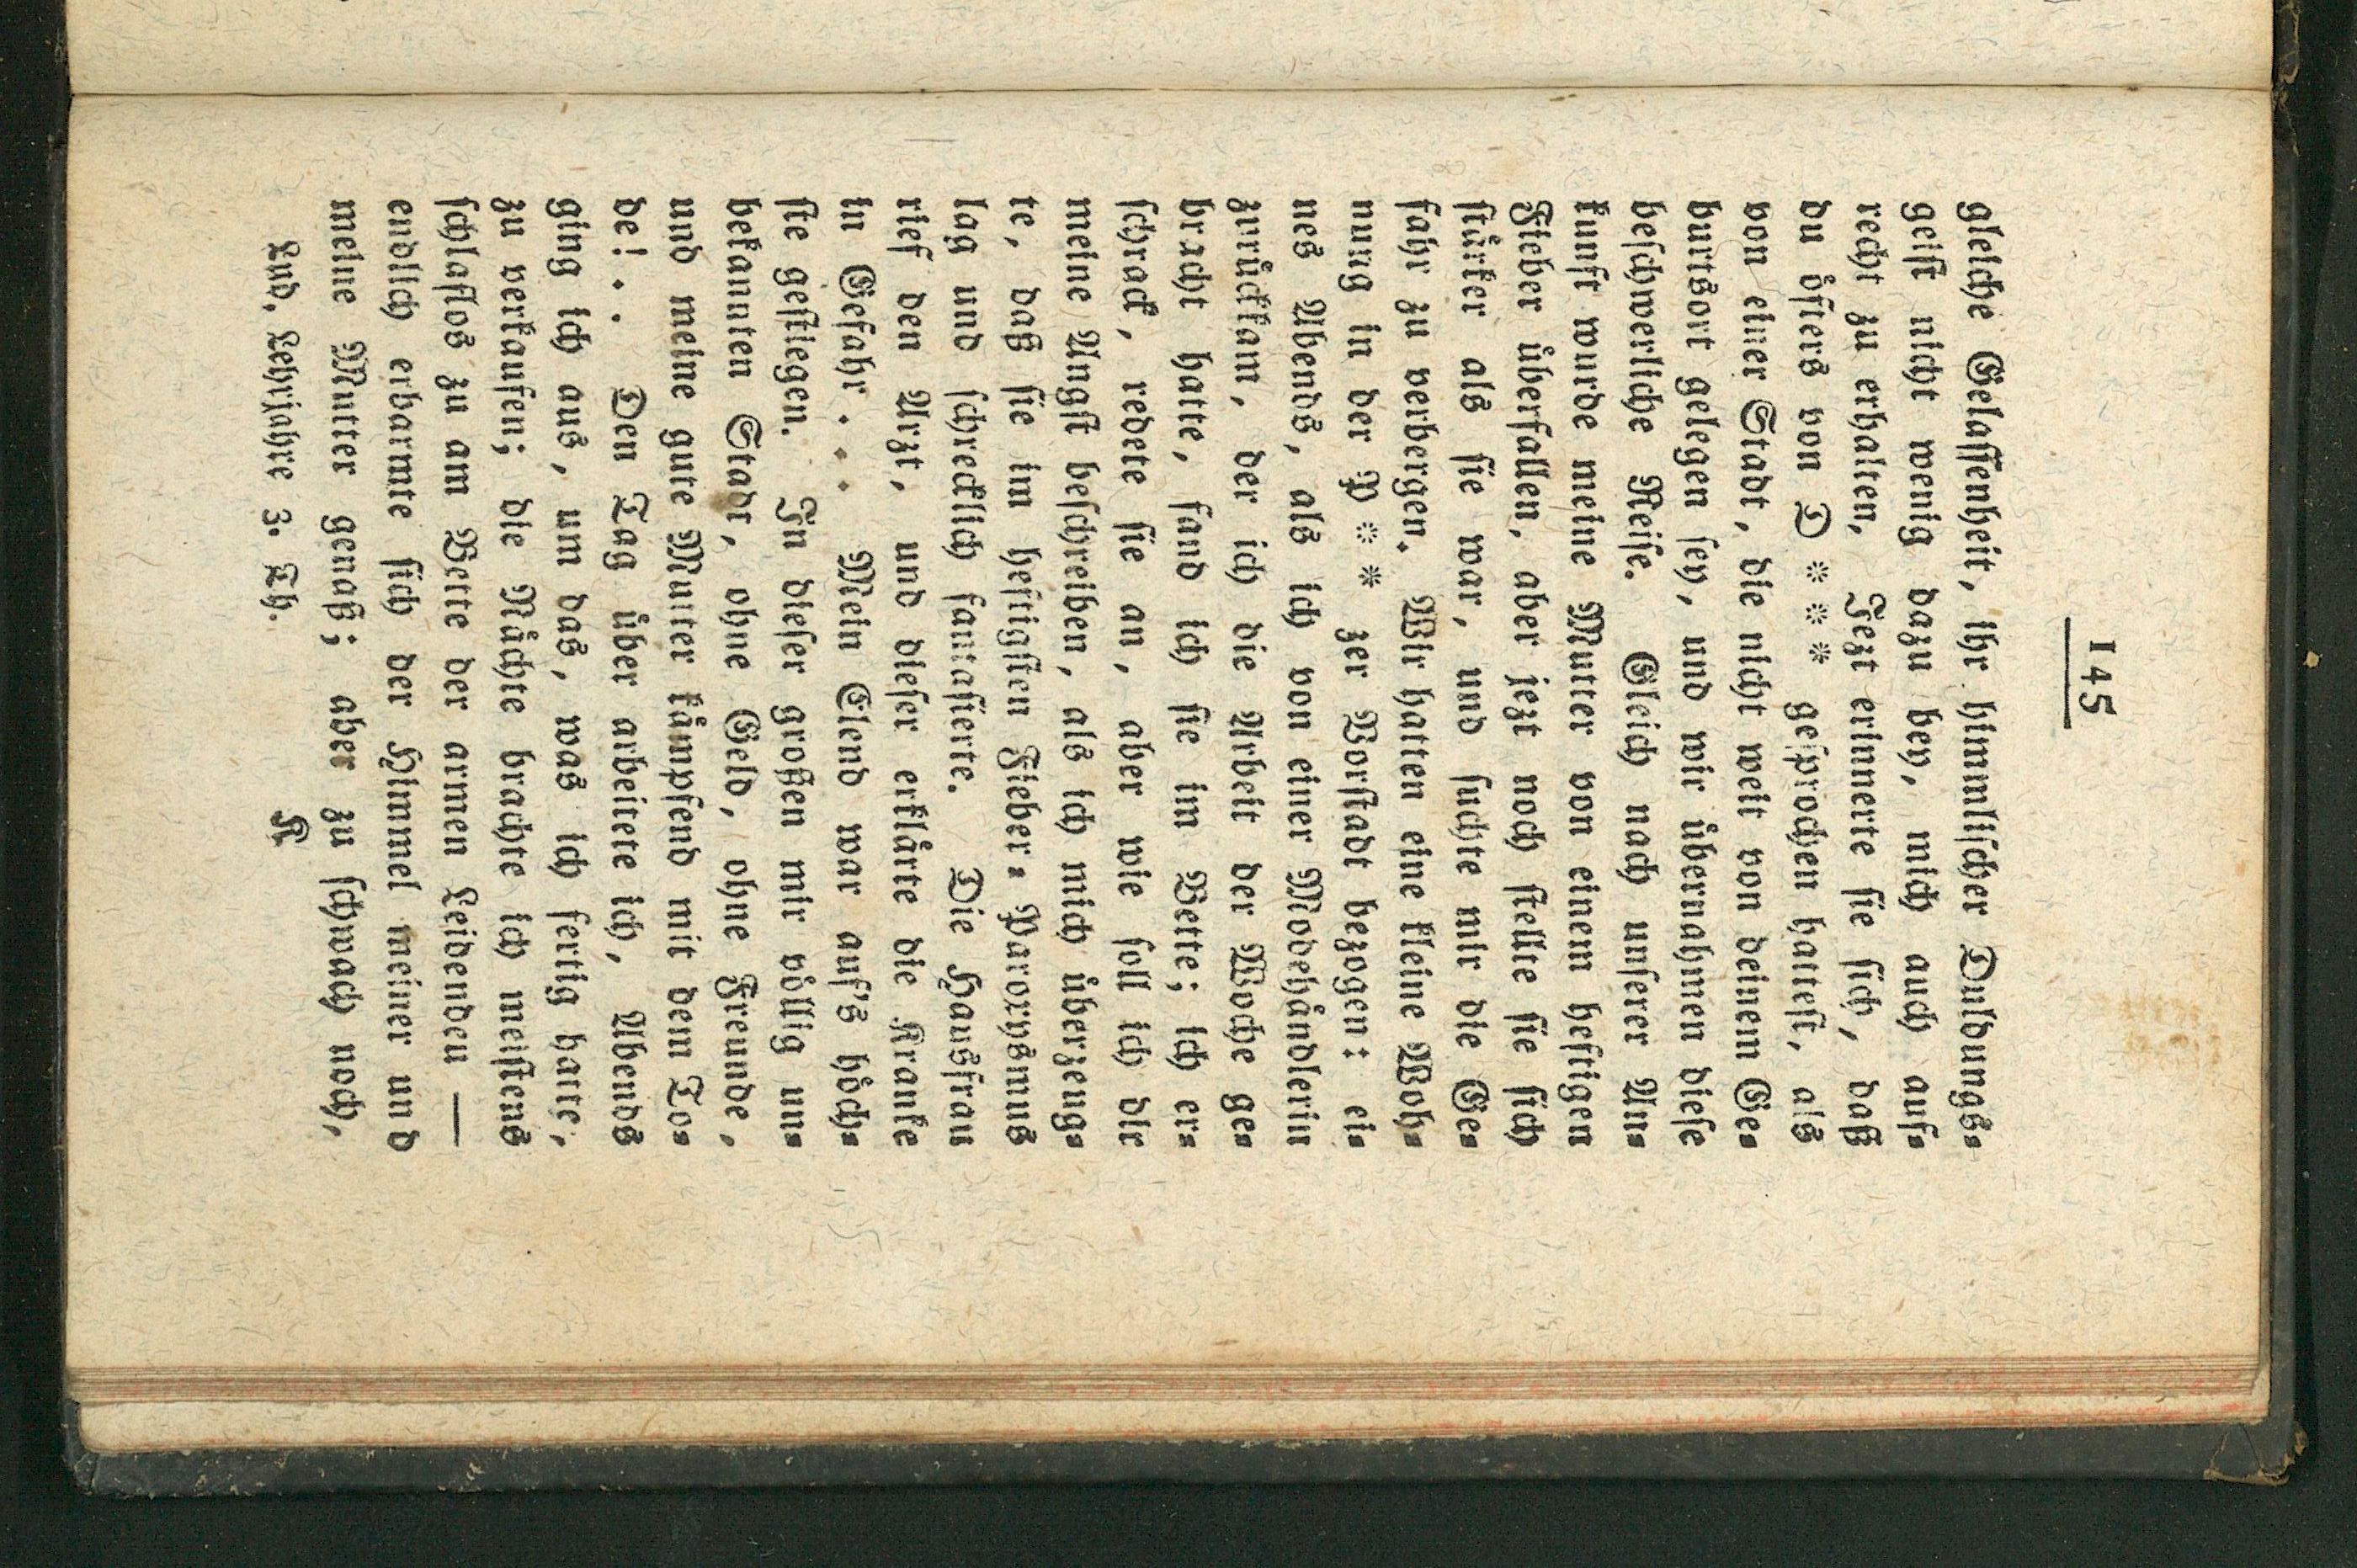 145
gleiche Gelaſſenheit, ihr himmliſcher Duldungs-
geiſt nicht wenig dazu bey, mich auch auf-
recht zu erhalten. Jezt erinnerte ſie ſich, daß
du öfters von D * * * geſprochen hatteſt, als
von einer Stadt, die nicht weit von deinem Ge-
burtsort gelegen ſey, und wir übernahmen dieſe
beſchwerliche Reiſe. Gleich nach unſerer An-
kunft wurde meine Mutter von einem heftigen
Fieber überfallen, aber jezt noch ſtellte ſie ſich
ſtärker als ſie war, und ſuchte mir die Ge-
fahr zu verbergen. Wir hatten eine kleine Woh-
nung in der P * * zer Vorſtadt bezogen: ei-
nes Abends, als ich von einer Modehändlerin
zurückkam, der ich die Arbeit der Woche ge-
bracht hatte, fand ich ſie im Bette; ich er-
ſchrack, redete ſie an, aber wie ſoll ich dir
meine Angſt beſchreiben, als ich mich überzeug-
te, daß ſie im heftigſten Fieber-Paroxysmus
lag und ſchrecklich fantaſierte. Die Hausfrau
rief den Arzt, und dieſer erklärte die Kranke
in Gefahr . . . Mein Elend war auf's höch-
ſte geſtiegen. In dieſer großen mir völlig un-
bekannten Stadt, ohne Geld, ohne Freunde,
und meine gute Mutter kämpfend mit dem To-
de! . . Den Tag über arbeitete ich, Abends
ging ich aus, um das, was ich fertig hatte,
zu verkaufen; die Nächte brachte ich meiſtens
ſchlaflos zu am Bette der armen Leidenden —
endlich erbarmte ſich der Himmel meiner und
meine Mutter genaß; aber zu ſchwach noch,
Lud. Lehrjahre 3. Th. K